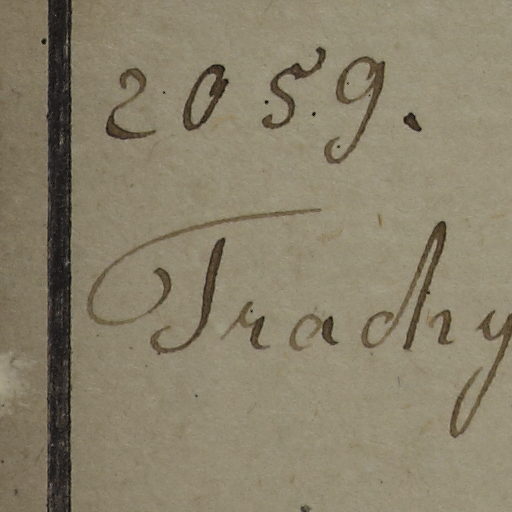 2059.
Trachy